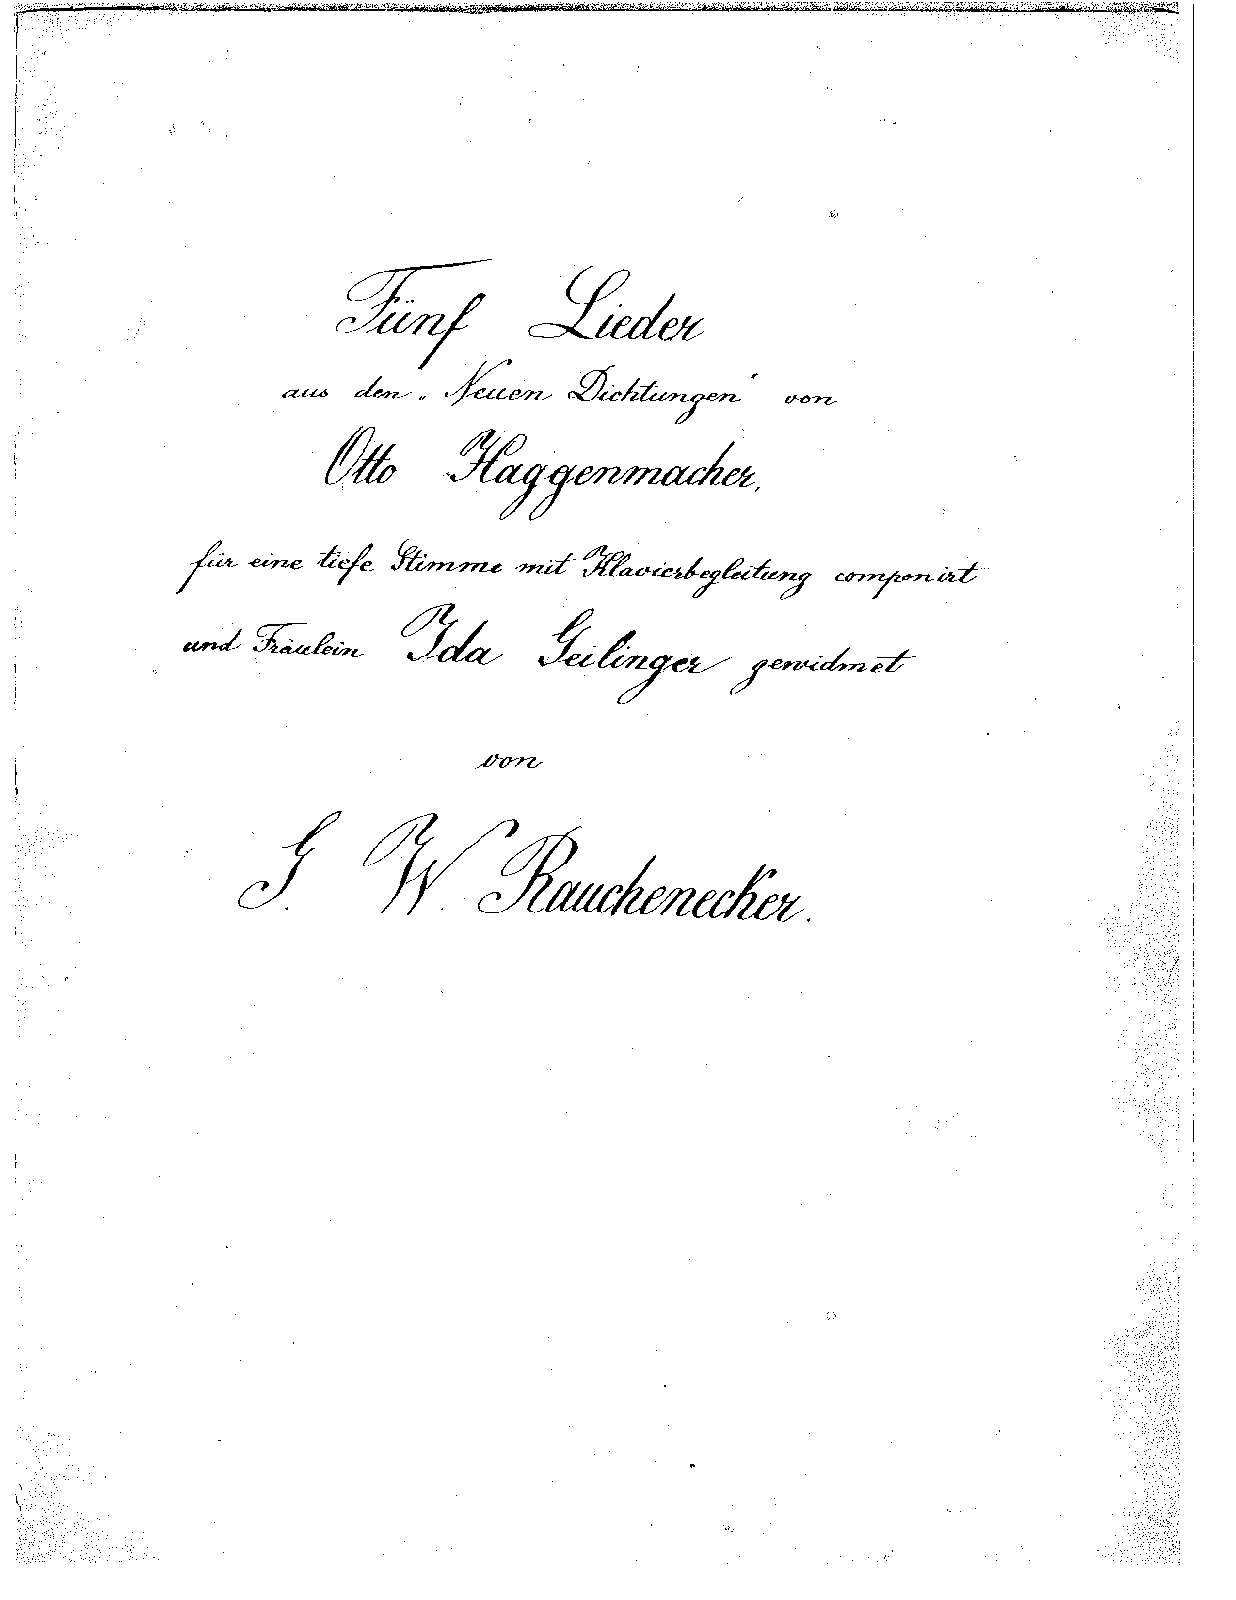 Fünf Lieder
aus den „Neuen Dichtungen" von
Otto Haggenmacher,
für eine tiefe Stimme mit Klavierbegleitung componirt
und Fräulein Ida Geilinger gewidmet
von
G. W. Rauchenecker.